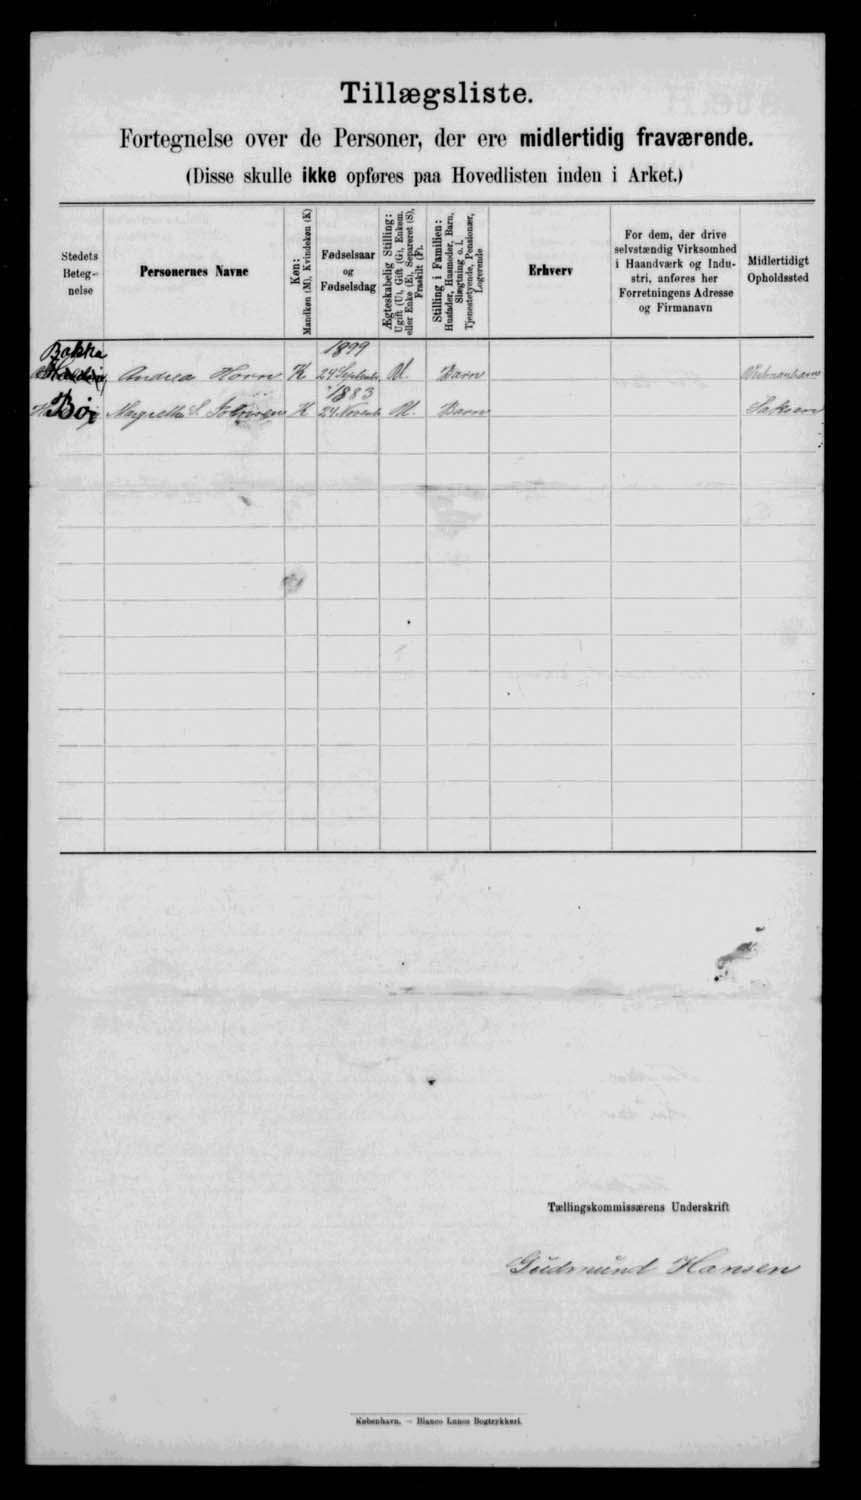 Tillægsliste.
Fortegnelse over de Personer, der ere midlertidig fraværende.
(Disse skulle ikke opføres paa Hovedlisten inden i Arket.)
Stedets
Beteg-
nelse
Personernes Navne
Køn:
Mandkøn (M), Kvindekøn (K)
Fødselsaar
og
Fødselsdag
Ægteskabelig Stilling:
Ugift (U), Gift (G), Enkem.
eller Enke (E), Separeret (S),
Fraskilt (F).
Stilling i Familien:
Husfader, Husmoder, Barn,
Slægtning o. l.
Tjenestetyende, Pensionær,
Logerende
Erhverv
For dem, der drive
selvstændig Virksomhed
i Haandværk og Indu-
stri, anføres her
Forretningens Adresse
og Firmanavn
Midlertidigt
Opholdssted
Bakka 1899
Andrea K 24 September U. Barn
1883
Bø Margrethe S. K 24 November U. Barn
Tællingskommissærens Underskrift
Gudmund Hansen
København. — Bianco Lunos Bogtrykkeri.